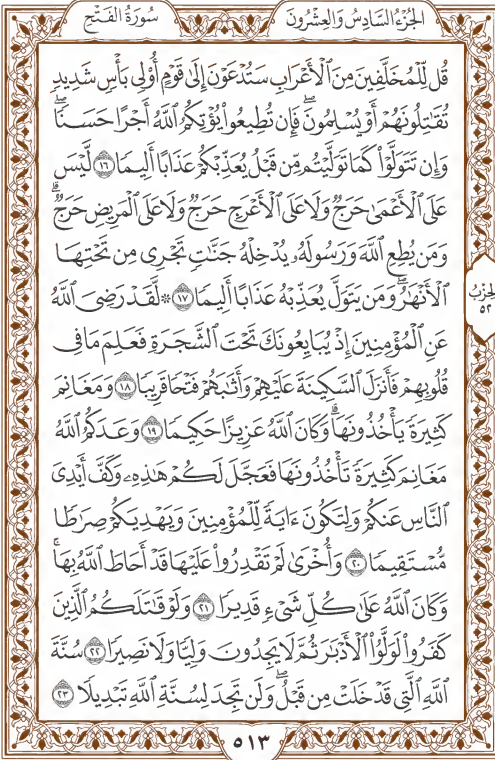 الجُزْءُ السَّادِسُ وَالعِشْرُونَ
سُورَةُ الفَتْحِ
قُل لِّلْمُخَلَّفِينَ مِنَ ٱلْأَعْرَابِ سَتُدْعَوْنَ إِلَىٰ قَوْمٍ أُو۟لِى بَأْسٍ شَدِيدٍ
تُقَـٰتِلُونَهُمْ أَوْ يُسْلِمُونَ ۖ فَإِن تُطِيعُوا۟ يُؤْتِكُمُ ٱللَّهُ أَجْرًا حَسَنًا ۖ
وَإِن تَتَوَلَّوْا۟ كَمَا تَوَلَّيْتُم مِّن قَبْلُ يُعَذِّبْكُمْ عَذَابًا أَلِيمًا ١٦ لَّيْسَ
عَلَى ٱلْأَعْمَىٰ حَرَجٌ وَلَا عَلَى ٱلْأَعْرَجِ حَرَجٌ وَلَا عَلَى ٱلْمَرِيضِ حَرَجٌ ۗ
وَمَن يُطِعِ ٱللَّهَ وَرَسُولَهُۥ يُدْخِلْهُ جَنَّـٰتٍ تَجْرِى مِن تَحْتِهَا
ٱلْأَنْهَـٰرُ ۖ وَمَن يَتَوَلَّ يُعَذِّبْهُ عَذَابًا أَلِيمًا ١٧ ۞ لَّقَدْ رَضِىَ ٱللَّهُ
الحِزْبُ
٥٢
عَنِ ٱلْمُؤْمِنِينَ إِذْ يُبَايِعُونَكَ تَحْتَ ٱلشَّجَرَةِ فَعَلِمَ مَا فِى
قُلُوبِهِمْ فَأَنزَلَ ٱلسَّكِينَةَ عَلَيْهِمْ وَأَثَـٰبَهُمْ فَتْحًا قَرِيبًا ١٨ وَمَغَانِمَ
كَثِيرَةً يَأْخُذُونَهَا ۗ وَكَانَ ٱللَّهُ عَزِيزًا حَكِيمًا ١٩ وَعَدَكُمُ ٱللَّهُ
مَغَانِمَ كَثِيرَةً تَأْخُذُونَهَا فَعَجَّلَ لَكُمْ هَـٰذِهِۦ وَكَفَّ أَيْدِىَ
ٱلنَّاسِ عَنكُمْ وَلِتَكُونَ ءَايَةً لِّلْمُؤْمِنِينَ وَيَهْدِيَكُمْ صِرَٰطًا
مُّسْتَقِيمًا ٢٠ وَأُخْرَىٰ لَمْ تَقْدِرُوا۟ عَلَيْهَا قَدْ أَحَاطَ ٱللَّهُ بِهَا ۚ
وَكَانَ ٱللَّهُ عَلَىٰ كُلِّ شَىْءٍ قَدِيرًا ٢١ وَلَوْ قَـٰتَلَكُمُ ٱلَّذِينَ
كَفَرُوا۟ لَوَلَّوُا۟ ٱلْأَدْبَـٰرَ ثُمَّ لَا يَجِدُونَ وَلِيًّا وَلَا نَصِيرًا ٢٢ سُنَّةَ
ٱللَّهِ ٱلَّتِى قَدْ خَلَتْ مِن قَبْلُ ۖ وَلَن تَجِدَ لِسُنَّةِ ٱللَّهِ تَبْدِيلًا ٢٣
٥١٣